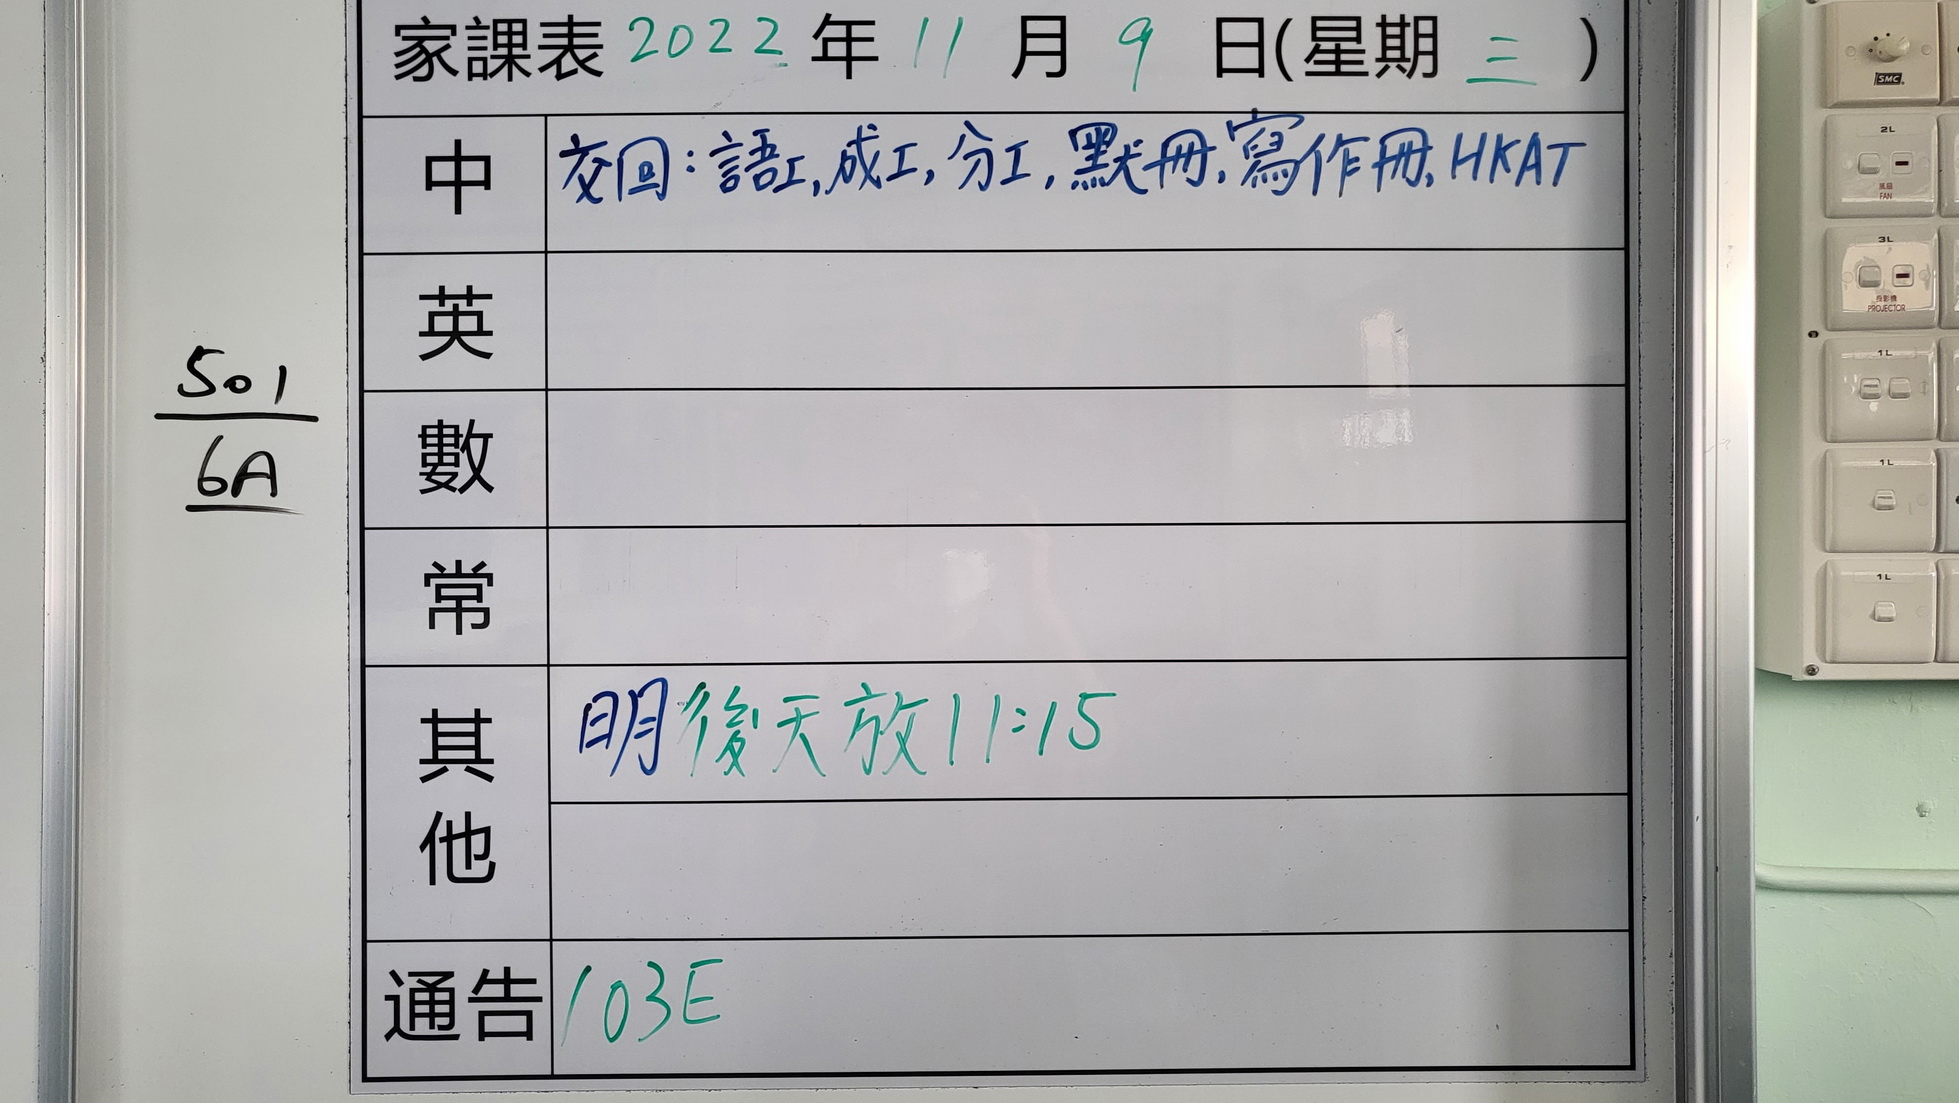 家課表 2022 年 11 月 9 日(星期 三 )
中 交回：語工, 成工, 分工, 默冊, 寫作冊, HKAT
英
數
常
其他 明後天放11:15
通告 103E
501
6A
SMC
2L
風扇
FAN
3L
投影機
PROJECTOR
1L
1L
1L